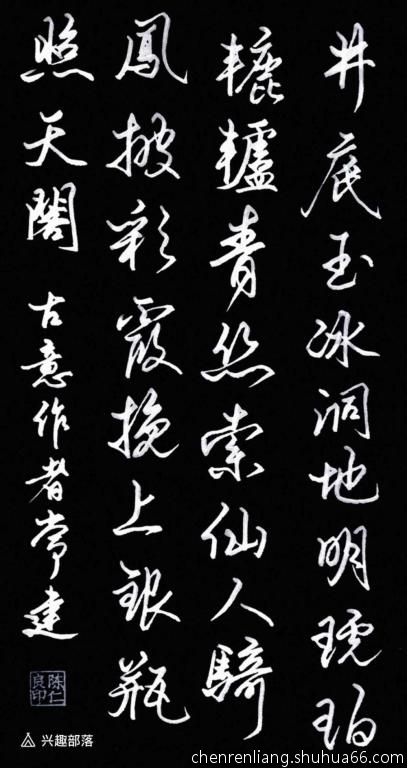 井底玉冰洞地明琥珀
轆轤青丝索仙人騎
鳳披彩霞挽上銀瓶
照天閣
古意作者常建
陈仁良印
兴趣部落
chenrenliang.shuhua66.com